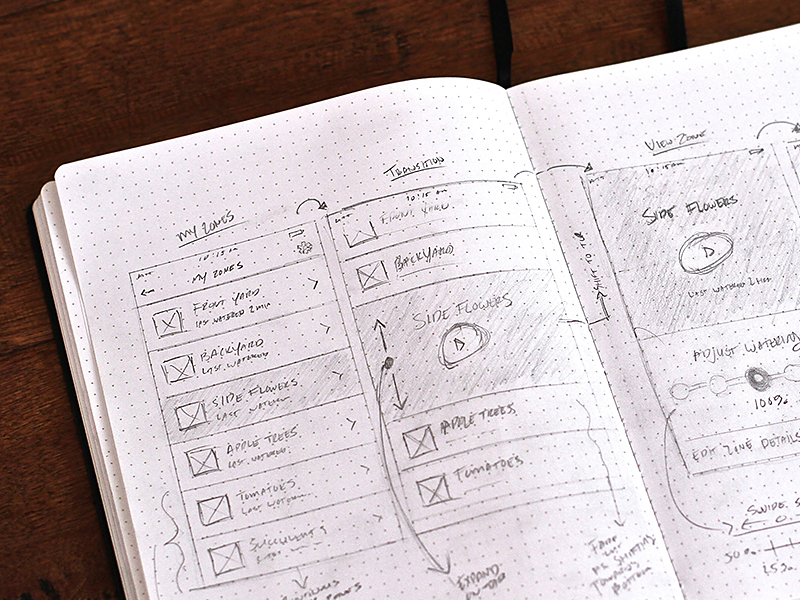 MY ZONES
10:15 am
MY ZONES
FRONT YARD
LAST WATERED
BACKYARD
LAST WATERED
SIDE FLOWERS
LAST WATERED
APPLE TREES
LAST WATERED
TOMATOES
LAST WATERED
SUCCULENTS
TRANSITION
10:15 am
FRONT YARD
BACKYARD
SIDE FLOWERS
APPLE TREES
TOMATOES
EXPAND
FADE
OUT
AS SHIFTING
TOWARDS
BOTTOM
VIEW ZONE
10:15 am
SIDE FLOWERS
LAST WATERED
SHIFT TO TOP
ADJUST WATERING
100%
EDIT ZONE DETAILS
50%